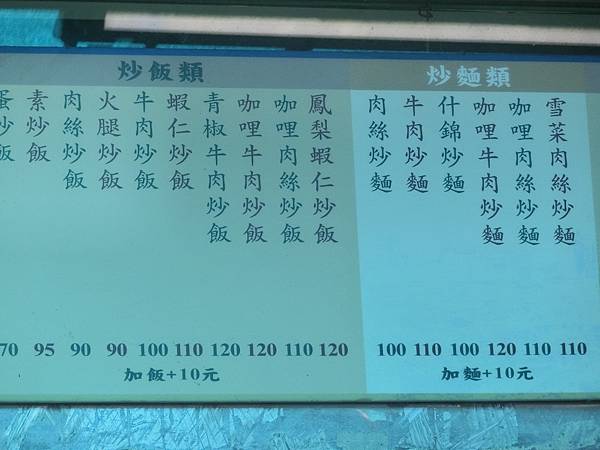 炒飯類
蛋炒飯
素炒飯
肉絲炒飯
火腿炒飯
牛肉炒飯
蝦仁炒飯
青椒牛肉炒飯
咖哩牛肉炒飯
咖哩肉絲炒飯
鳳梨蝦仁炒飯
70 95 90 90 100 110 120 120 110 120
加飯+10元
炒麵類
肉絲炒麵
牛肉炒麵
什錦炒麵
咖哩牛肉炒麵
咖哩肉絲炒麵
雪菜肉絲炒麵
100 110 100 120 110 110
加麵+10元